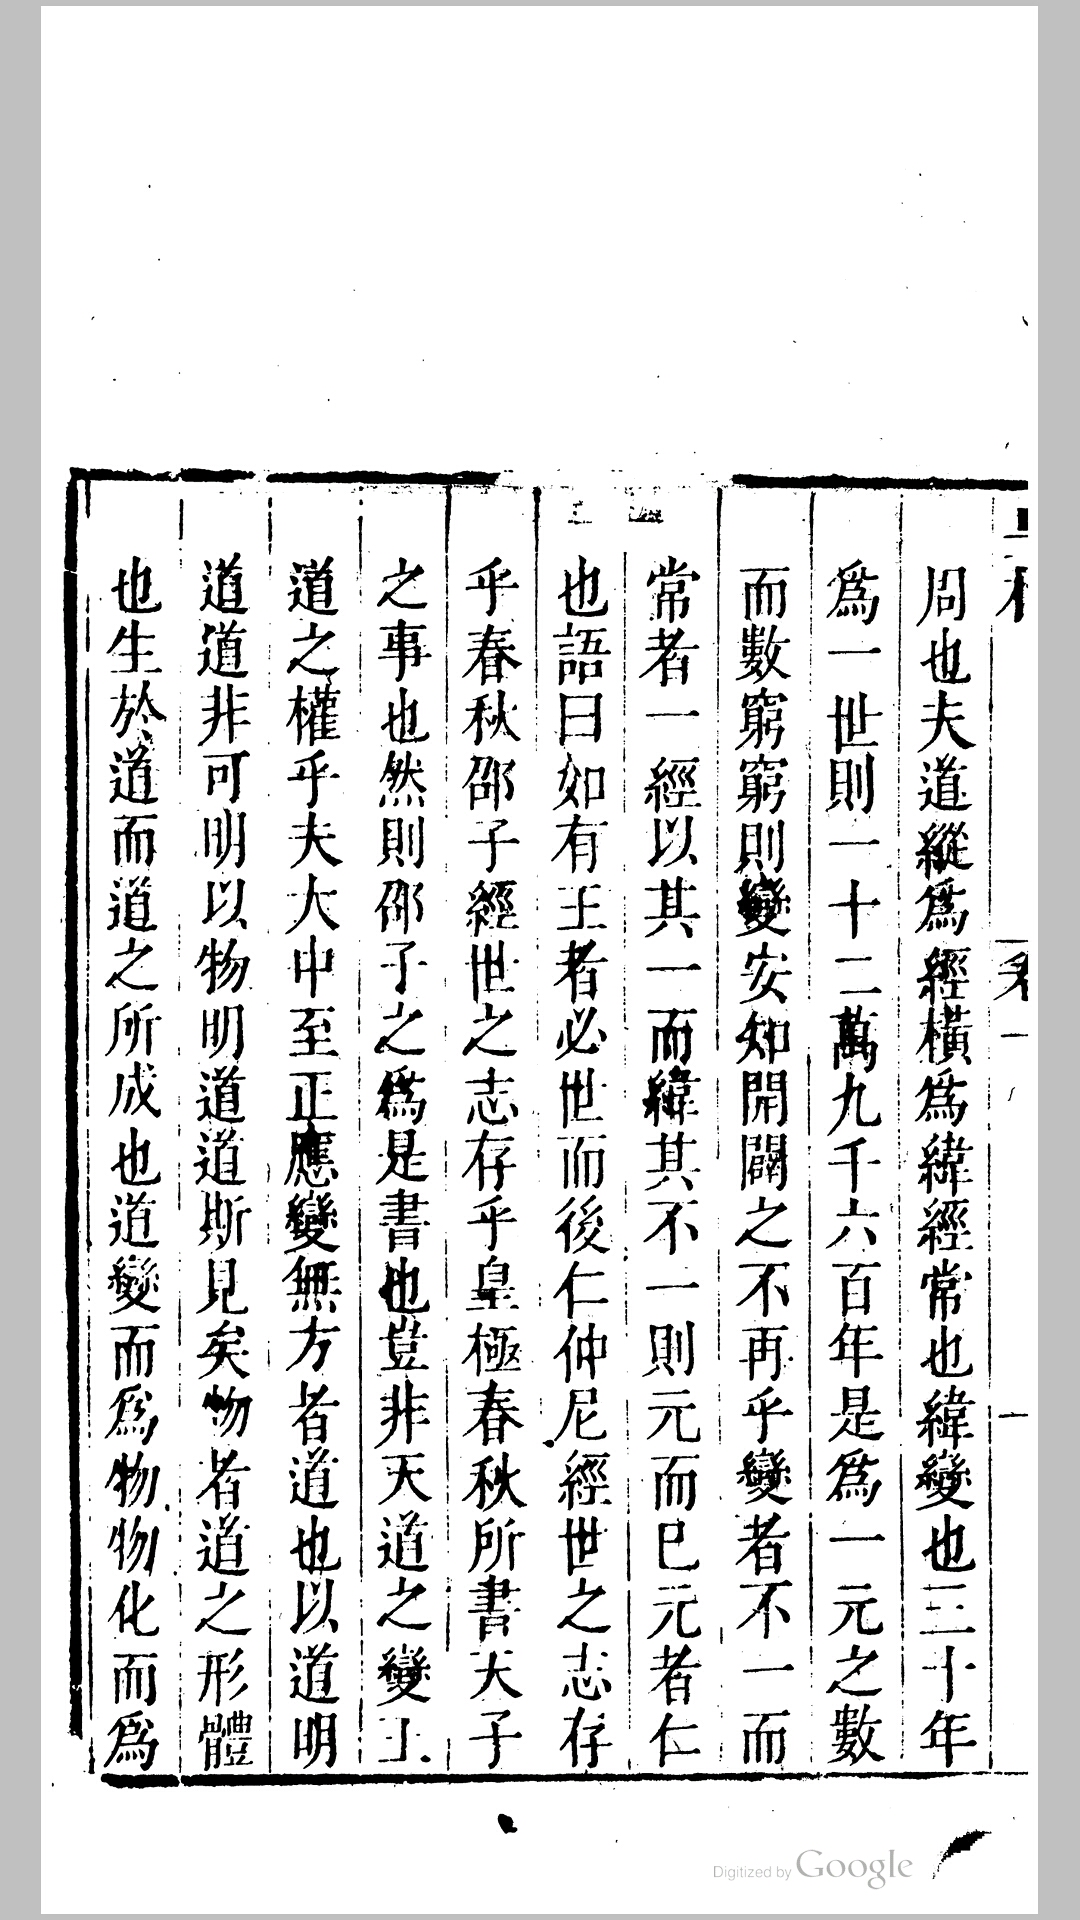 周也夫道縱爲經橫爲緯經常也緯變也三十年
爲一世則一十二萬九千六百年是爲一元之數
而數窮窮則變安知開闢之不再乎變者不一而
常者一經以其一而緯其不一則元而已元者仁
也語曰如有王者必世而後仁仲尼經世之志存
乎春秋邵子經世之志存乎皇極春秋所書天子
之事也然則邵子之爲是書也豈非天道之變王
道之權乎夫大中至正應變無方者道也以道明
道道非可明以物明道道斯見矣物者道之形體
也生於道而道之所成也道變而爲物物化而爲
Digitized by Google